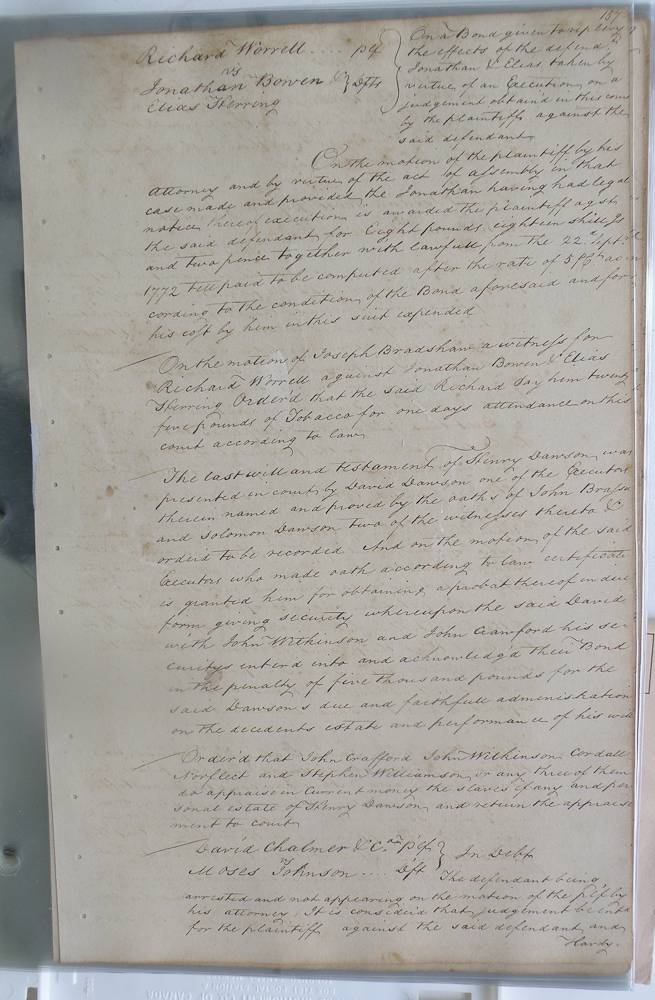 157
Richard Worrell .... plf
vs
Jonathan Bowen & } Dfts
Elias Herring
On a Bond given to replevy
the effects of the defend.ts
Jonathan & Elias taken by
virtue of an Execution on a
judgement obtain'd in this cour
by the plaintiff against the
said defendant
On the motion of the plaintiff by his
attorney and by virtue of the act of assembly in that
case made and provided the Jonathan having had legal
notice thereof execution is awarded the plaintiff agst
the said defendant for Eight pounds eighteen shill.gs
and two pence together with lawfull from the 22.d Sept.r
1772 till paid to be computed after the rate of 5 P Ct ac
cording to the condition of the Bond aforesaid and for
his cost by him in this suit expended
On the motion of Joseph Bradshaw a witness for
Richard Worrell against Jonathan Bowen & Elias
Herring Order'd that the said Richard pay him twenty
five pounds of Tobacco for one days attendance on this
court according to law
The last will and testament of Henry Dawson was
presented in court by David Dawson one of the Executors
therein named and proved by the oaths of John Brassu
and Solomon Dawson two of the witnesses thereto &
orderd to be recorded And on the motion of the said
Executors who made oath according to law certificate
is granted him for obtaining a probat thereof in due
form giving security whereupon the said David
with John Wilkinson and John Crawford his se
curitys enterd into and acknowledg'd their Bond
in the penalty of five thousand pounds for the
said Dawson's due and faithfull administration
on the decedents estate and performance of his will
Order'd that John Crafford John Wilkinson Cordall
Norfleet and Stephen Williamson or any three of them
do appraise in Current money the slaves if any and per
sonal estate of Henry Dawson and return the appraise
ment to court
David Chalmer & C.o plf } In Debt
vs
Moses Johnson .... Dft
The defendant being
arrested and not appearing on the motion of the plf by
his attorney It is consider'd that judgement be entd
for the plaintiff against the said defendant and
Hardy.